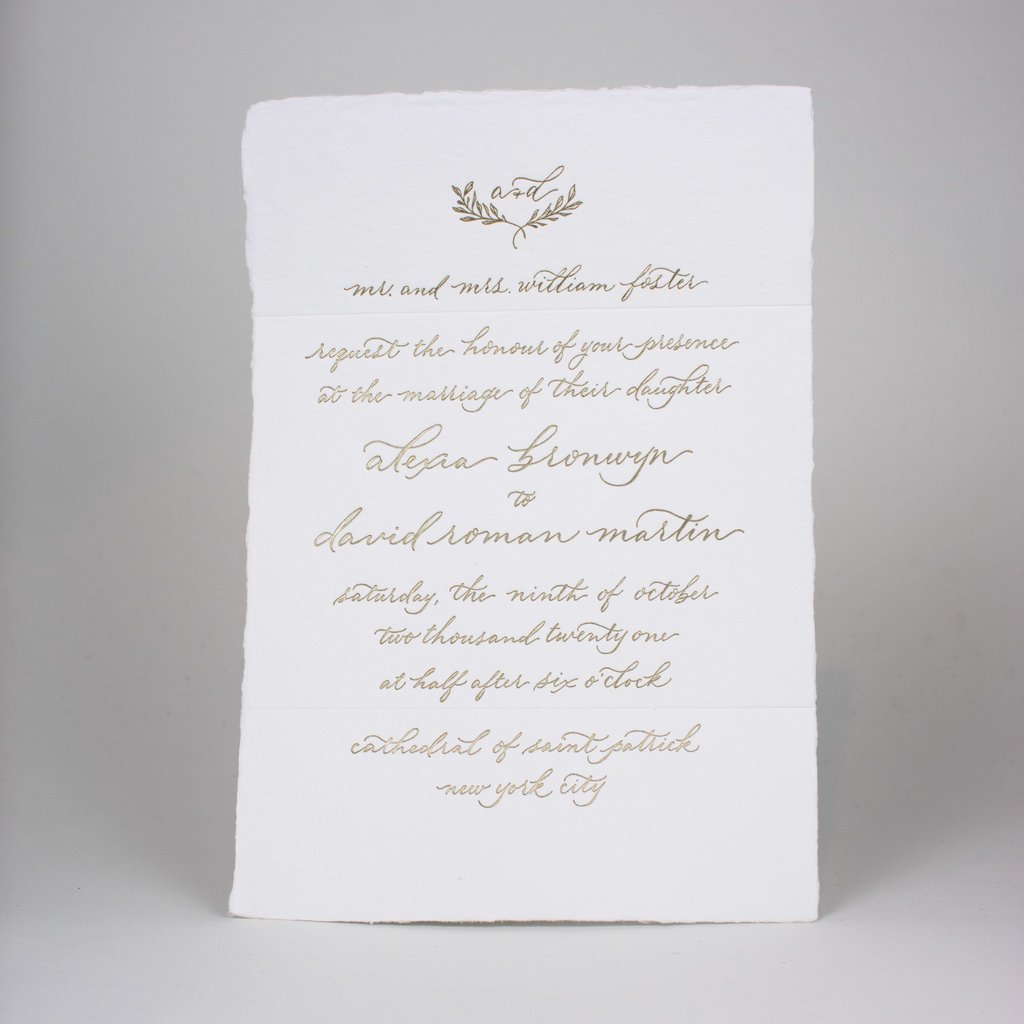 a & d
mr. and mrs. william foster
request the honour of your presence
at the marriage of their daughter
alexa bronwyn
to
david roman martin
saturday, the ninth of october
two thousand twenty one
at half after six o'clock
cathedral of saint patrick
new york city